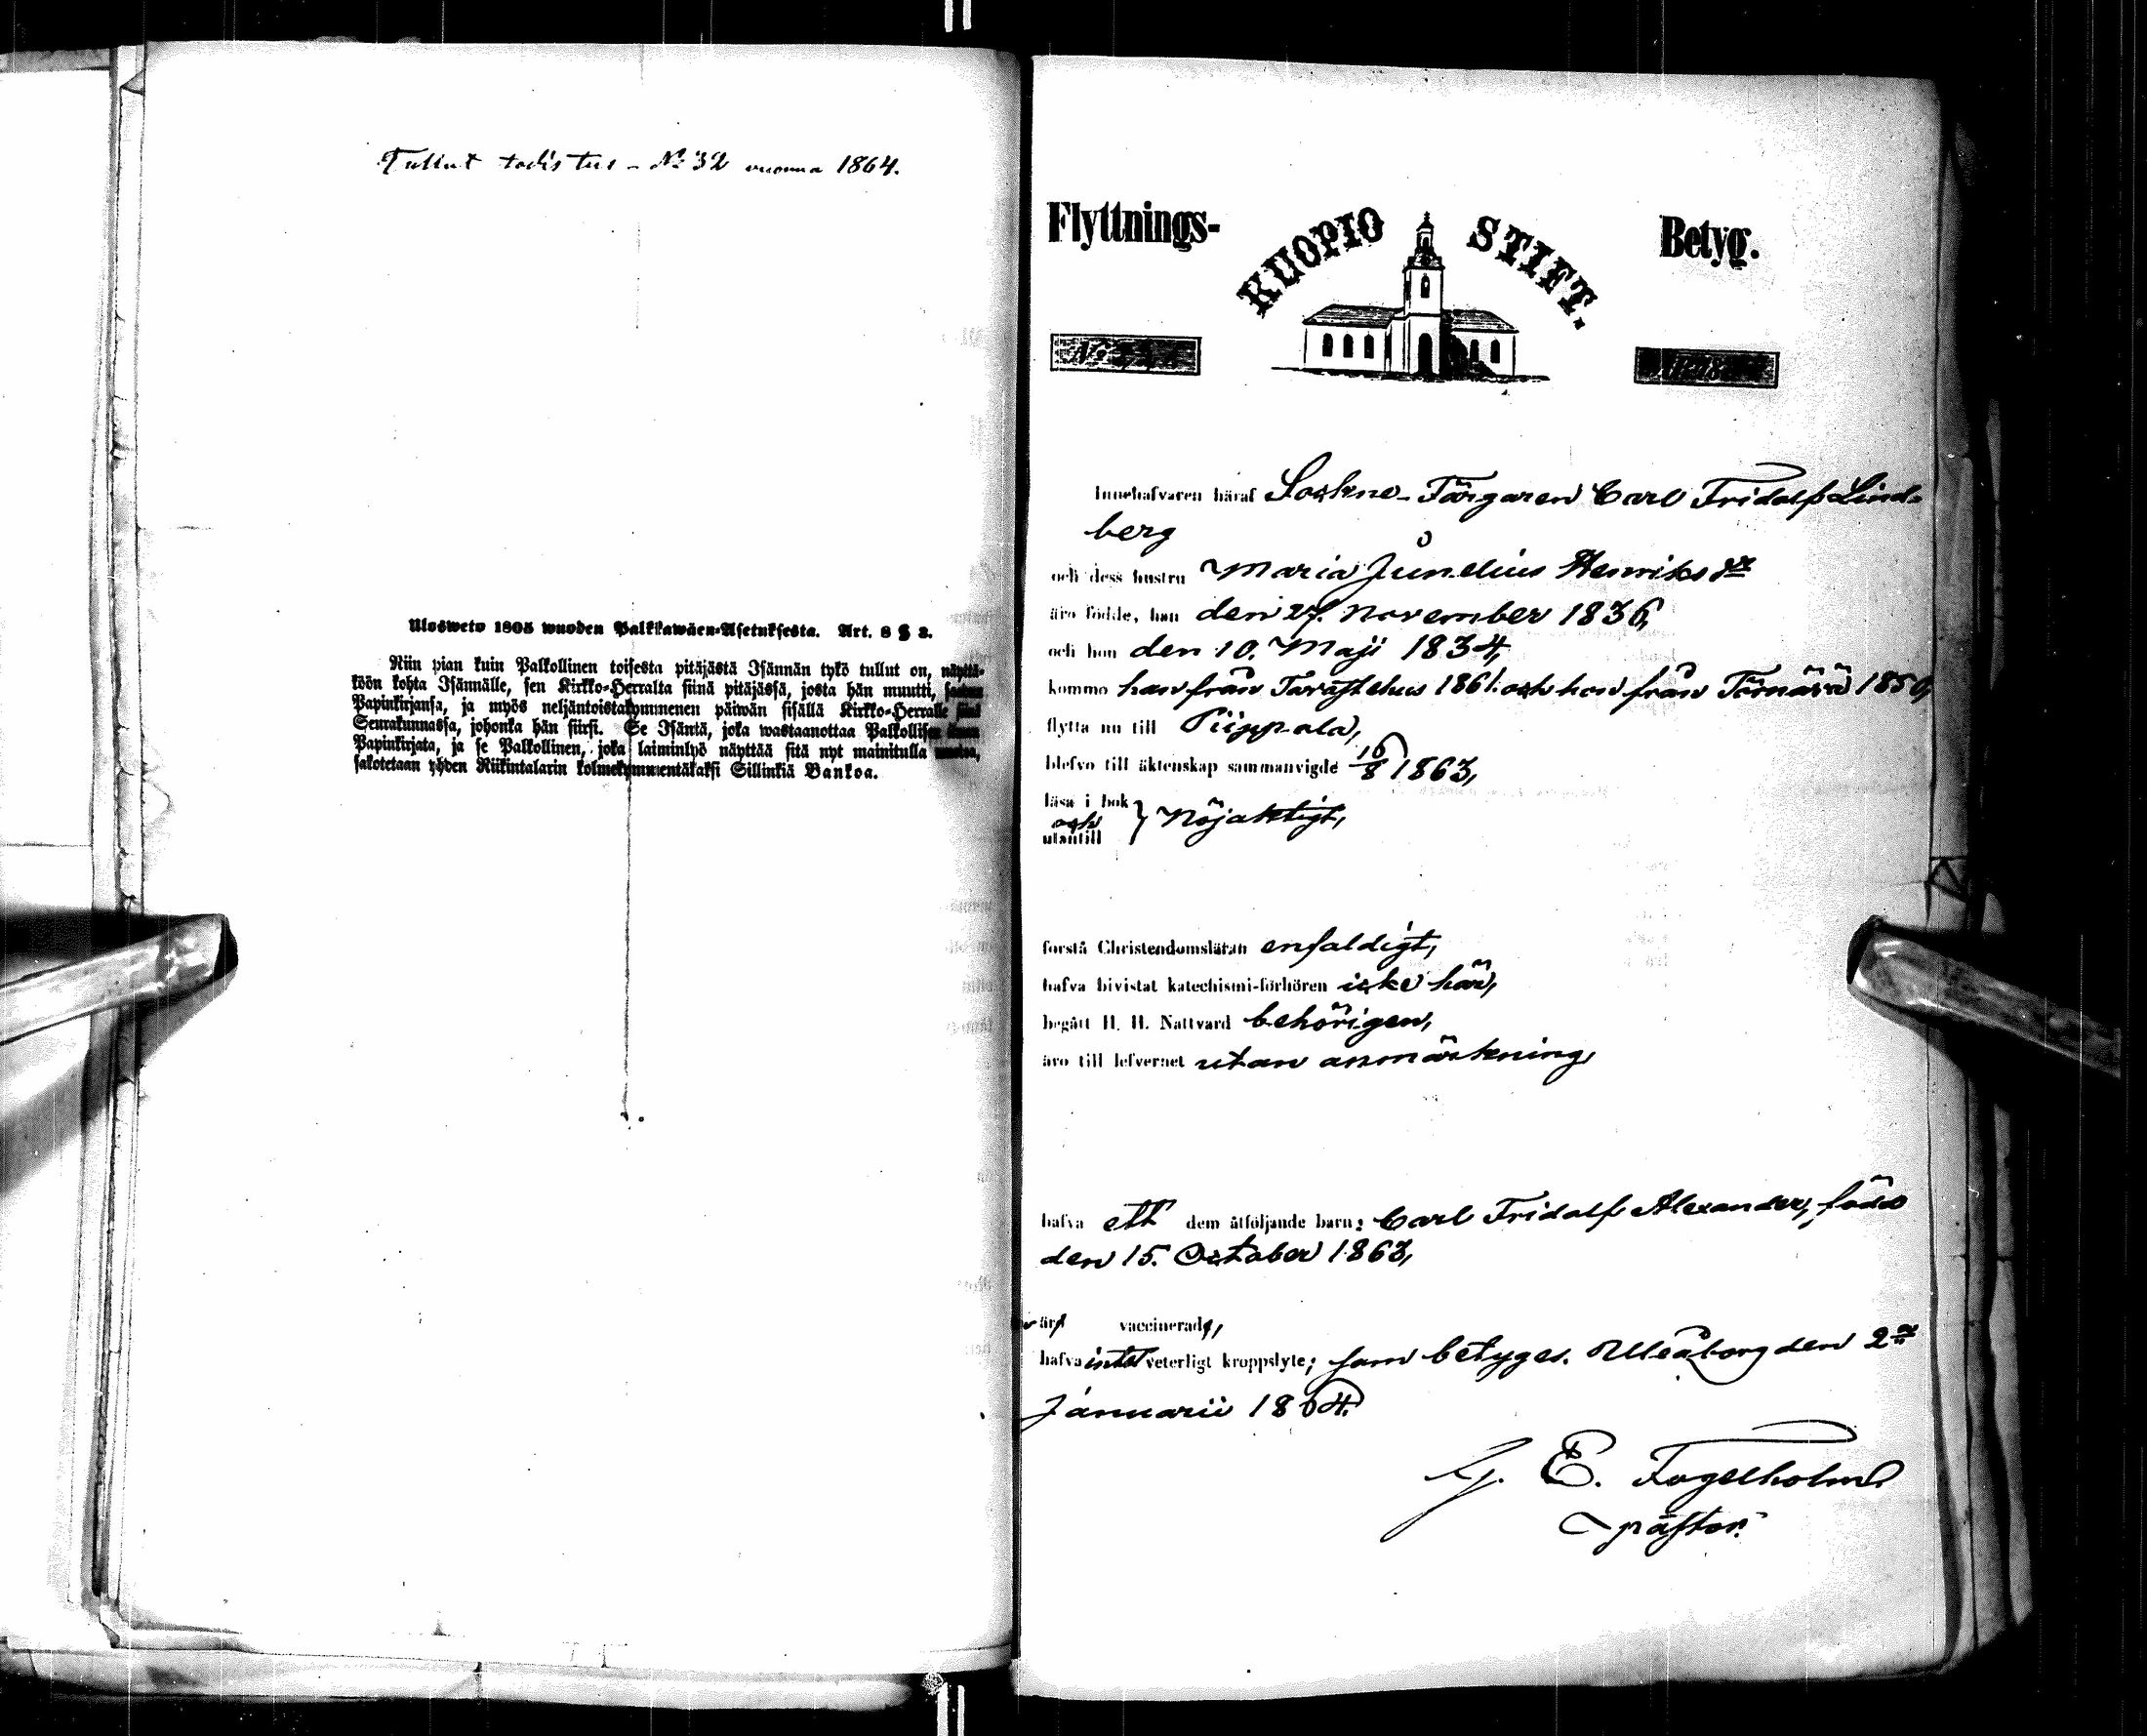 Tullut todistus - № 32 vuonna 1864.
Ulosweto 1805 wuoden Palkkawäen-Asetuksesta. Art. 8 § 3.
Niin pian kuin Palkollinen toisesta pitäjästä Isännän tykö tullut on, näyttä-
köön kohta Isännälle, sen Kirkko-Herralta siinä pitäjässä, josta hän muutti, saatun
Papinkirjansa, ja myös neljäntoistakymmenen päiwän sisällä Kirkko-Herralle siinä
Seurakunnassa, johonka hän siirsi. Se Isäntä, joka wastaanottaa Palkollisen ilman
Papinkirjata, ja se Palkollinen, joka laiminlyö näyttää sitä nyt mainitulla
sakotetaan yhden Riikintalarin kolmekymmentäkaksi Sillinkiä Bankoa.
Flyttnings- KUOPIO STIFT. Betyg.
№
Innehafvaren häraf Sockne-Färgaren Carl Fridolf Lind-
berg
och dess hustru Maria Junelius Henriksdr
äro födde, han den 27. November 1836,
och hon den 10. Maji 1834,
kommo han från Tavastehus 1861. och hon från Törnävä 1850,
flytta nu till Piippola,
blefvo till äktenskap sammanvigde 16/8 1863,
läsa i bok
och } Nöjaktigt,
utantill
förstå Christendomsläran enfaldigt,
hafva bivistat katechismi-förhören icke här,
begått H. H. Nattvard behörigen,
äro till lefvernet utan anmärkning
hafva ett dem åtföljande barn: Carl Fridolf Alexander, född
den 15. October 1863,
är vaccinerad,
hafva intet veterligt kroppslyte; som betyges. Uleåborg den 2dr
Januarii 1864.
G. E. Fogelholm
pastor.